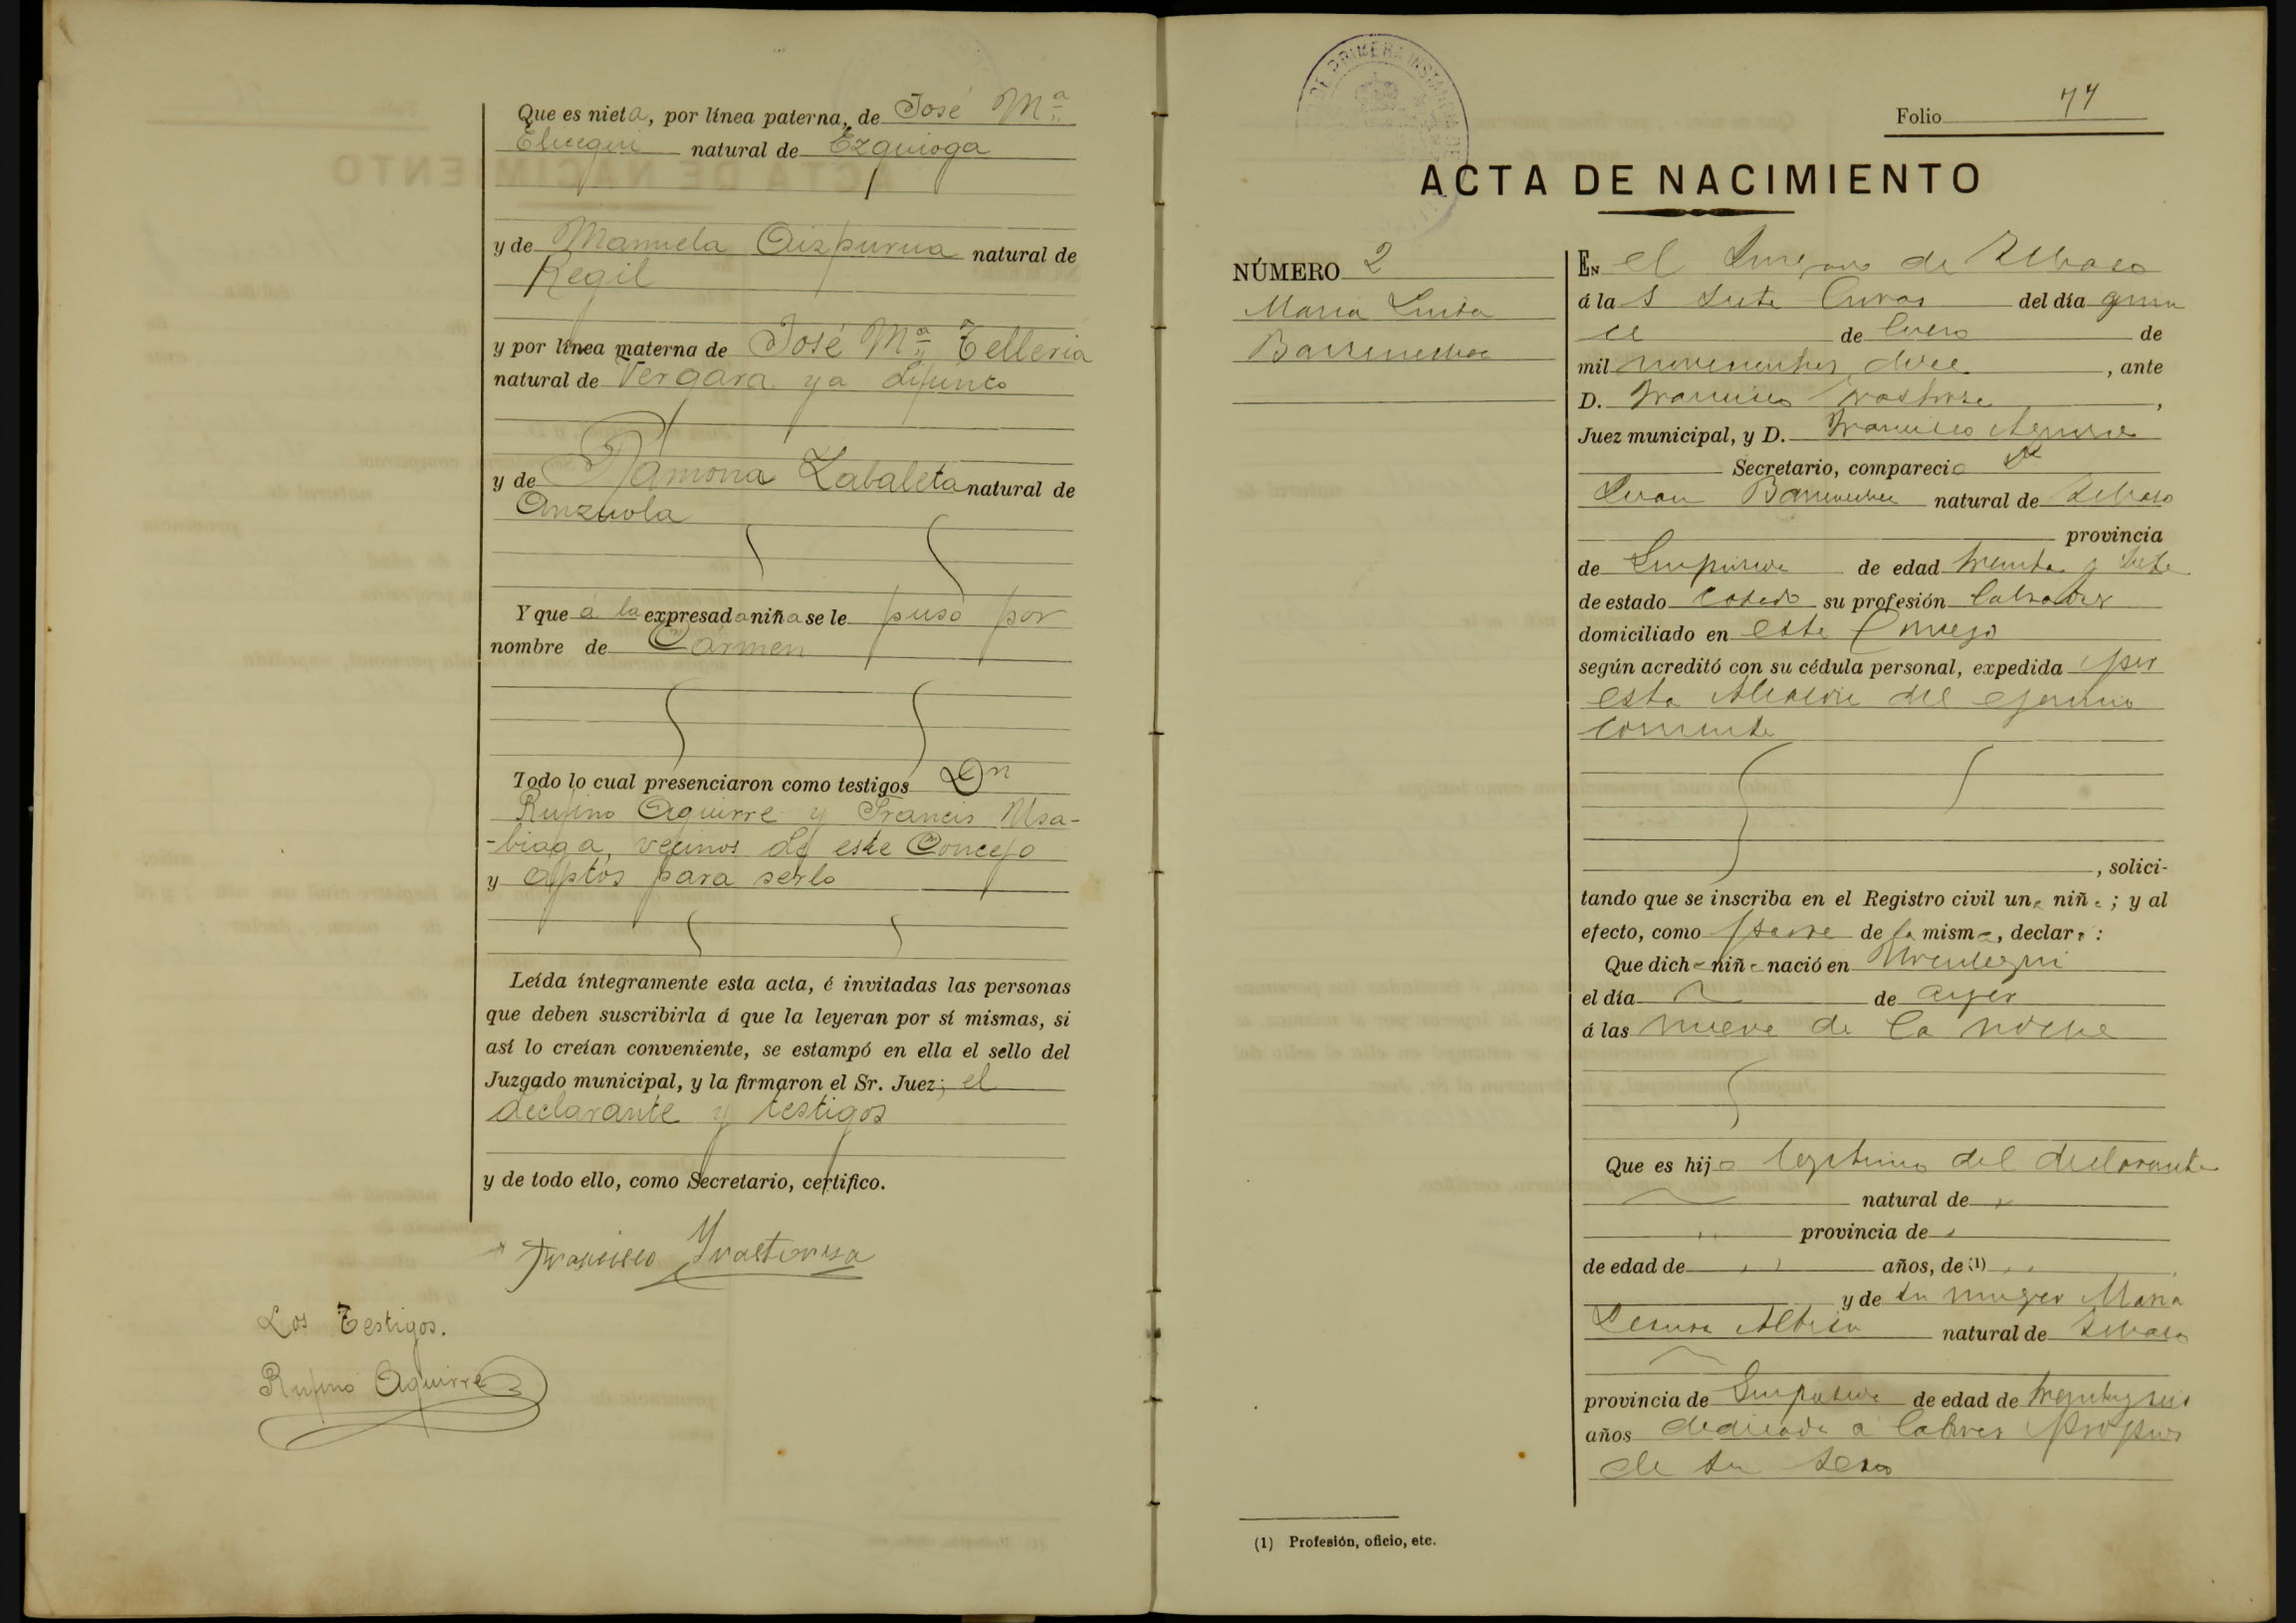 Que es nieta, por línea paterna, de José Mª
Elicegui natural de Ezquioga
y de Manuela Aizpurua natural de
Regil
y por línea materna de José Mª Telleria
natural de Vergara ya difunto
y de Ramona Zabaleta natural de
Anzuola
Y que á la expresada niña se le puso por
nombre de Carmen
Todo lo cual presenciaron como testigos Dn
Rufino Aguirre y Francis Usa-
-biaga, vecinos de este Concejo
y aptos para serlo
Leída íntegramente esta acta, é invitadas las personas
que deben suscribirla á que la leyeran por sí mismas, si
así lo creían conveniente, se estampó en ella el sello del
Juzgado municipal, y la firmaron el Sr. Juez; el
declarante y testigos
y de todo ello, como Secretario, certifico.
Francisco Yrastorza
Los Testigos.
Rufino Aguirre
DE PRIMERA INSTANCIA DE
Folio 77
ACTA DE NACIMIENTO
NÚMERO 2
Maria Luisa
Barrenechea
EN el de
á las siete horas del día quin
ce de Enero de
mil novecientos doce, ante
D. Francisco Yrastorza,
Juez municipal, y D. Francisco Aguirre
Secretario, compareció Dn
Juan Barrenechea natural de
provincia
de Guipuzcoa de edad treinta y siete
de estado casado su profesión labrador
domiciliado en este Concejo
según acreditó con su cédula personal, expedida por
esta Alcaldia del ejercicio
corriente
, solici-
tando que se inscriba en el Registro civil una niña; y al
efecto, como padre de la misma, declaró:
Que dicha niña nació en
el día de ayer
á las nueve de la noche
Que es hija legitima del declarante
natural de "
" provincia de "
de edad de " años, de (1) "
y de su muger Maria
natural de
provincia de Guipuzcoa de edad de treinta y seis
años dedicada á labores propias
de su sexo
(1) Profesión, oficio, etc.